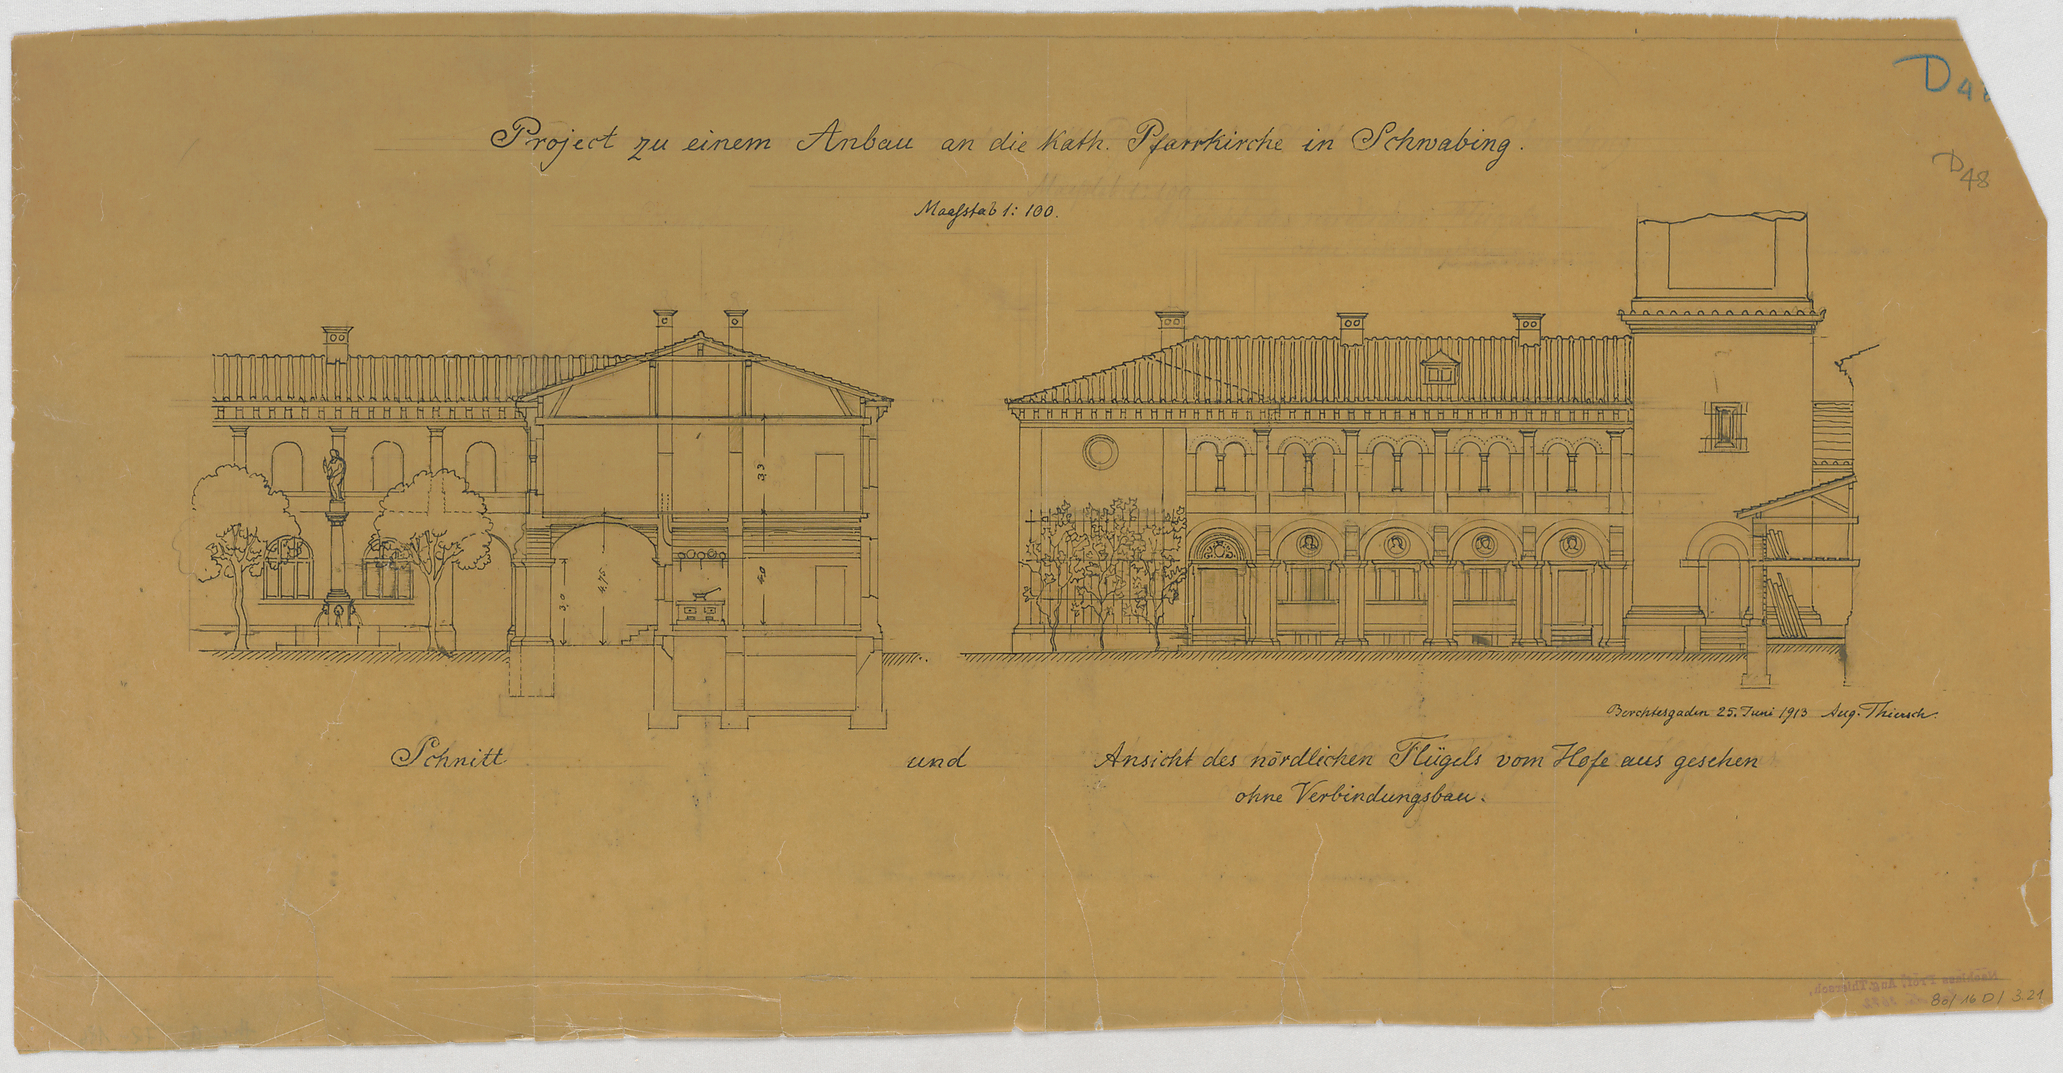 D 48
Project zu einem Anbau an die kath. Pfarrkirche in Schwabing.
D 48
Maaßstab 1:100.
3,3
3,0
4,75
4,0
Berchtesgaden 25. Juni 1913 Aug. Thiersch.
Schnitt und Ansicht des nördlichen Flügels vom Hofe aus gesehen
ohne Verbindungsbau.
Nachlass Prof. Aug. Thiersch,
80/16 D/ 3.21